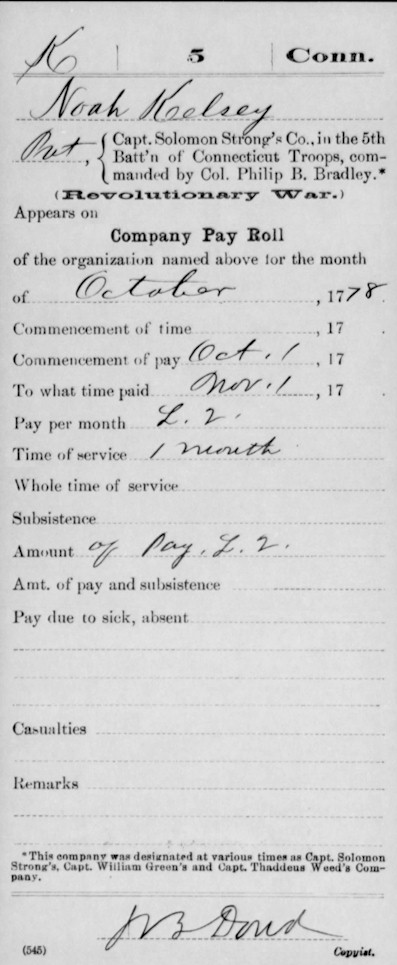 K | 5 | Conn.
Noah Kelsey
Pvt, { Capt. Solomon Strong's Co., in the 5th
Batt'n of Connecticut Troops, com-
manded by Col. Philip B. Bradley.*
(Revolutionary War.)
Appears on
Company Pay Roll
of the organization named above for the month
of October, 1778.
Commencement of time, 17 .
Commencement of pay Oct. 1, 17 .
To what time paid Nov. 1, 17 .
Pay per month L. 2.
Time of service 1 month
Whole time of service
Subsistence
Amount of Pay. L. 2.
Amt. of pay and subsistence
Pay due to sick, absent
Casualties
Remarks
*This company was designated at various times as Capt. Solomon
Strong's, Capt. William Green's and Capt. Thaddeus Weed's Com-
pany.
Dowd
(545) Copyist.